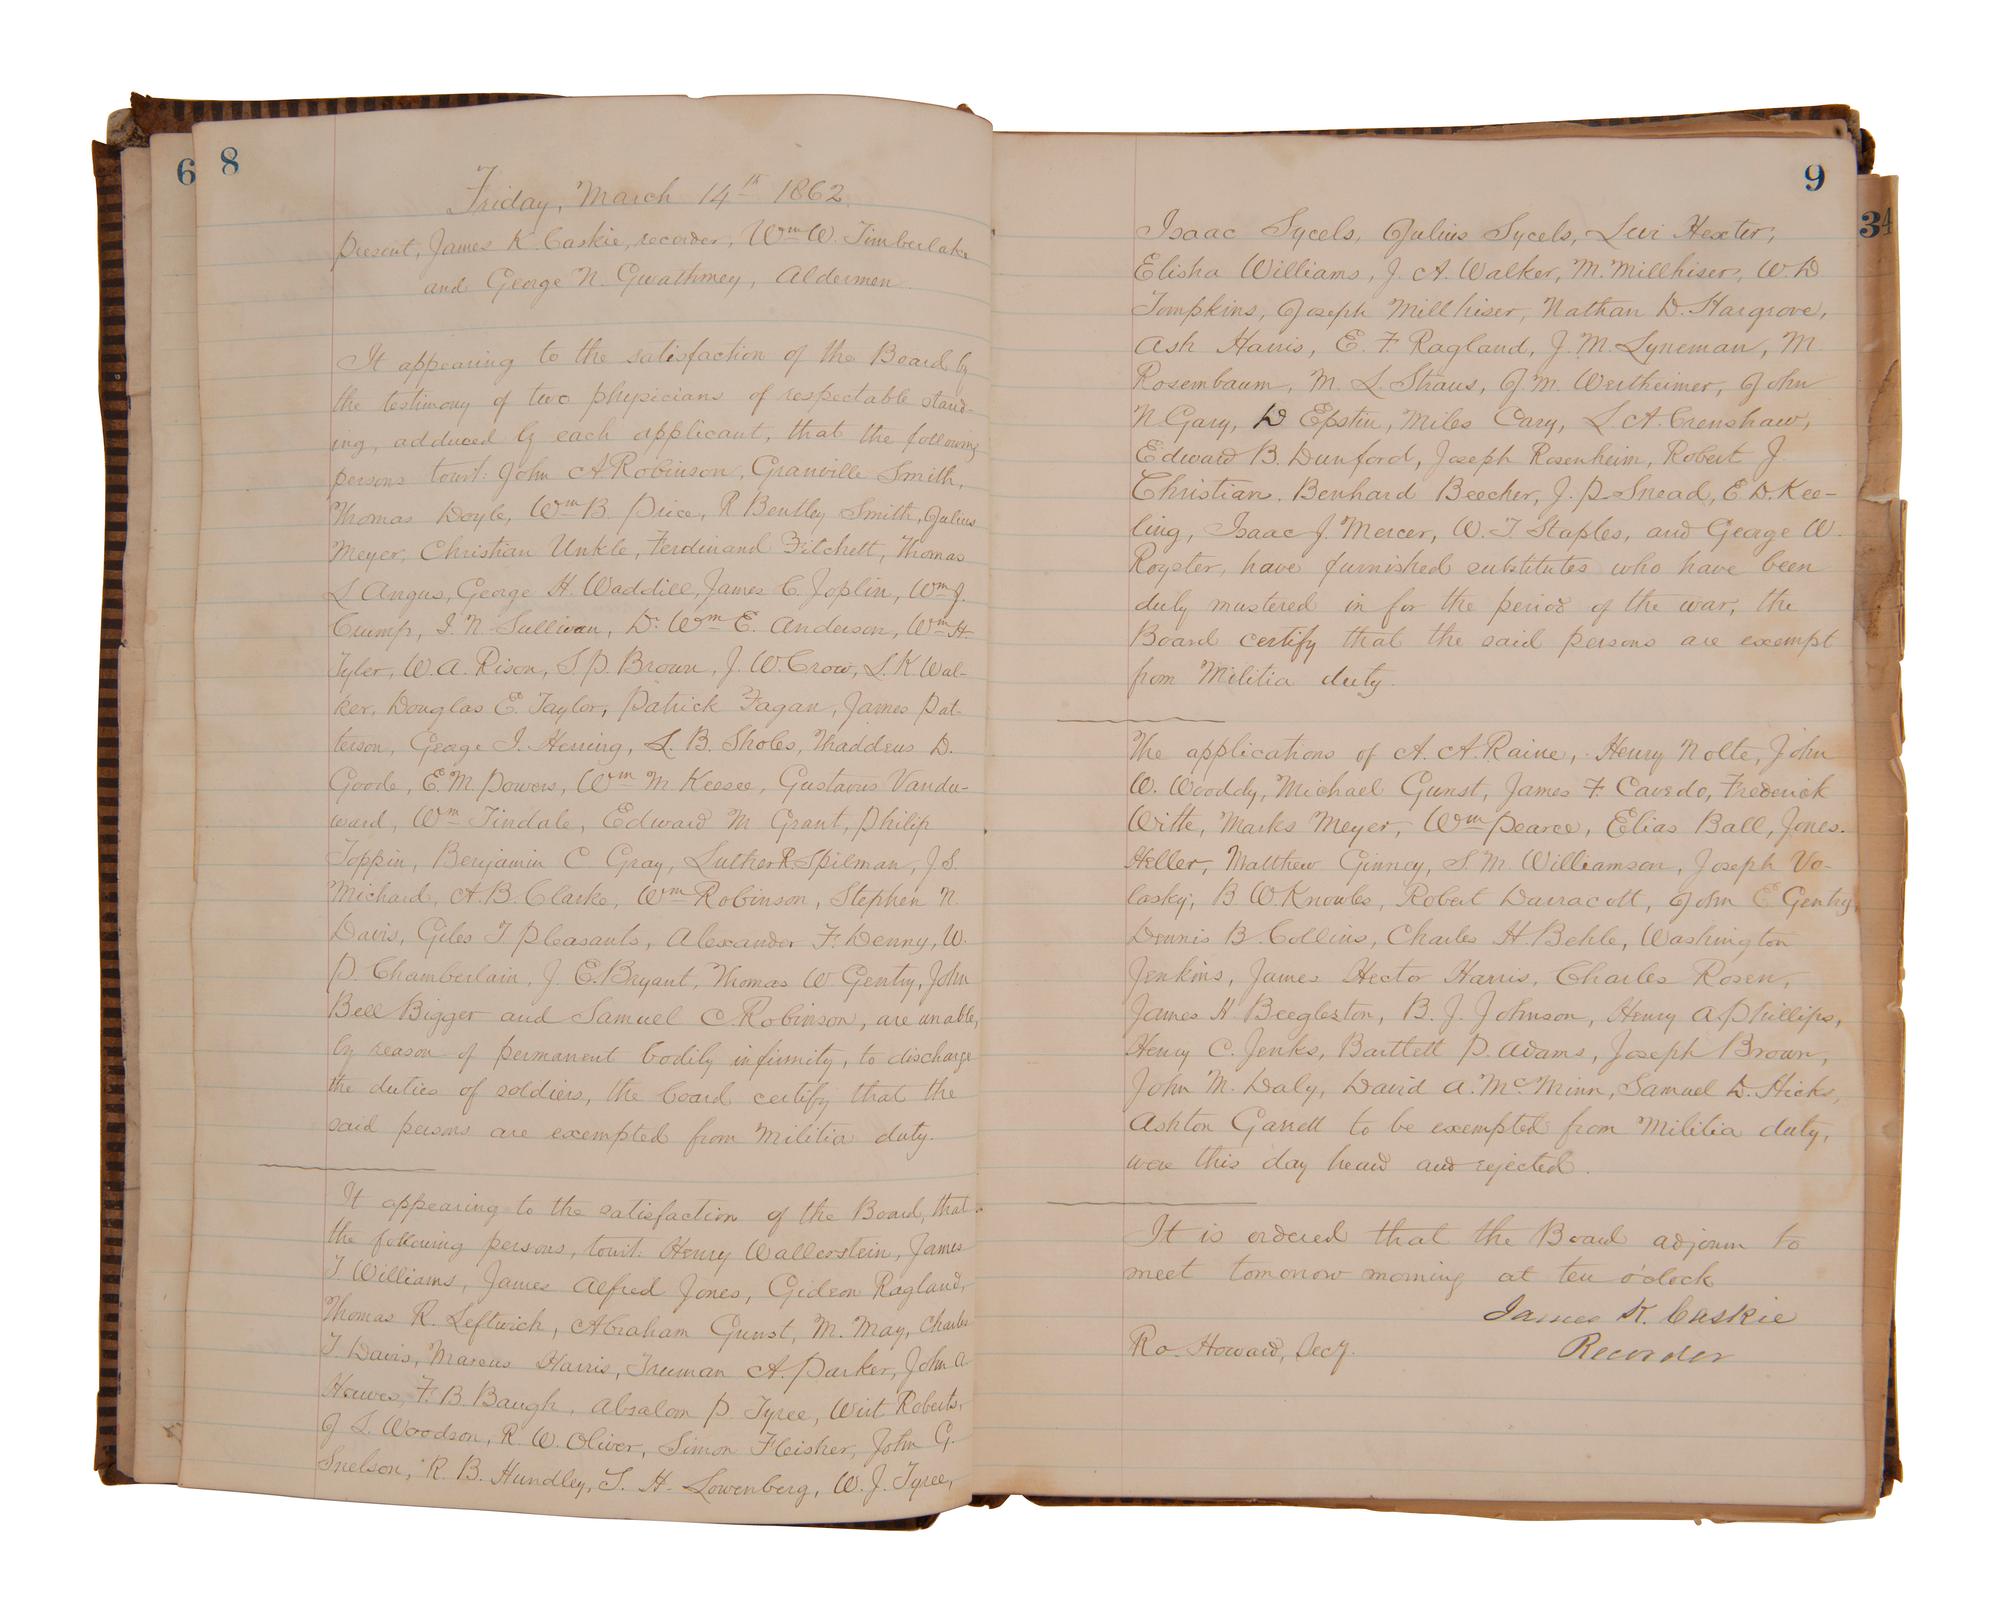 6
8
Friday, March 14th 1862.
Present, James K. Caskie, recorder, Wm W. Timberlake
and George N. Gwathmey, Aldermen.
It appearing to the satisfaction of the Board by
the testimony of two physicians of respectable stand-
ing, adduced by each applicant, that the following
persons towit: John A Robinson, Granville Smith,
Thomas Doyle, Wm B. Price, R Bentley Smith, Julius
Meyer, Christian Unkle, Ferdinand Fitchett, Thomas
L Angus, George H. Waddill, James C. Joplin, Wm J.
Crump, J. N. Sullivan, Dr Wm E. Anderson, Wm H
Tyler, W. A. Rison, S. P. Brown, J. W. Crow, L. K. Wal-
ker, Douglas E. Taylor, Patrick Fagan, James Pat-
terson, George I. Herring, L. B. Sholes, Thaddeus D.
Goode, E. M. Powers, Wm M Keesee, Gustavus Vandu-
ward, Wm Tindale, Edward M Grant, Philip
Toppin, Benjamin C Gray, Luther R. Spilman, J. S.
Michard, A. B. Clarke, Wm Robinson, Stephen N.
Davis, Giles T. Pleasants, Alexander F. Denny, W.
P. Chamberlain, J. E. Bryant, Thomas W Gentry, John
Bell Bigger and Samuel C. Robinson, are unable,
by reason of permanent bodily infirmity, to discharge
the duties of soldiers, the board certify that the
said persons are exempted from Militia duty.
It appearing to the satisfaction of the Board, that
the following persons, towit: Henry Wallerstein, James
T. Williams, James Alfred Jones, Gideon Ragland,
Thomas R. Leftwich, Abraham Gunst, M. May, Charles
T. Davis, Marcus Harris, Truman A. Parker, John A
Hawes, F. B. Baugh, Absalom P. Tyree, Wirt Roberts,
J L. Woodson, R. W. Oliver, Simon Fleisher, John G.
Snelson, R. B. Hundley, S. H. Lowenberg, W. J. Tyree,
9
34
Isaac Sycels, Julius Sycels, Levi Hexter,
Elisha Williams, J. A. Walker, M. Millhiser, W. D
Tompkins, Joseph Millhiser, Nathan D. Hargrove,
Ash Harris, E. F. Ragland, J. M. Lyneman, M
Rosembaum, M. L. Straus, J. M. Wertheimer, John
N. Gary, D Epstin, Miles Cary, L. A. Crenshaw,
Edward B. Dunford, Joseph Rosenheim, Robert J.
Christian, Benhard Beecher, J. P. Snead, E. D. Kee-
ling, Isaac J. Mercer, W. T. Staples, and George W.
Royster, have furnished substitutes who have been
duly mustered in for the period of the war, the
Board certify that the said persons are exempt
from Militia duty.
The applications of A. A. Raine, Henry Nolte, John
W. Wooddy, Michael Gunst, James F. Cavedo, Frederick
Witte, Marks Meyer, Wm Pearce, Elias Ball, Jones.
Heller, Matthew Ginney, S. M. Williamson, Joseph Vo-
lasky, B. W. Knowles, Robert Darracott, John E Gentry,
Dennis B. Collins, Charles H. Behle, Washington
Jenkins, James Hector Harris, Charles Rosen,
James H Beegleston, B. J. Johnson, Henry A Phillips,
Henry C. Jenks, Bartlett P. Adams, Joseph Brown,
John M. Daly, David A. McMinn, Samuel D. Hicks,
Ashton Garrett to be exempted from Militia duty,
were this day heard and rejected.
It is ordered that the Board adjourn to
meet tomorrow morning at ten o'clock
James K. Caskie
Ro. Howard, Secy. Recorder